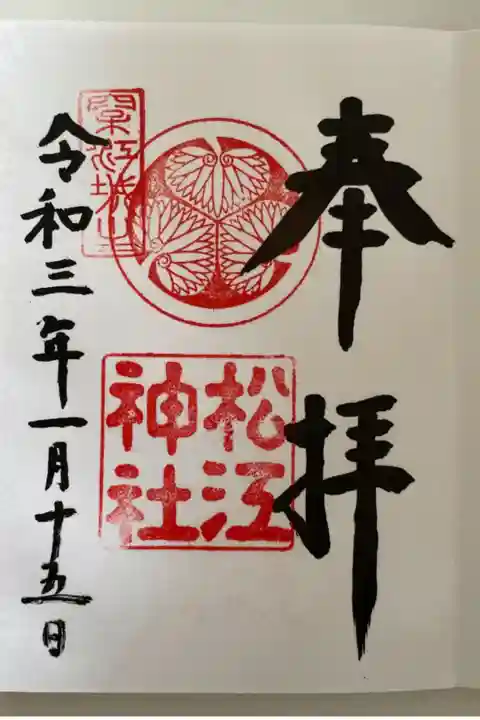 奉拝
松江
神社
令和三年一月十五日